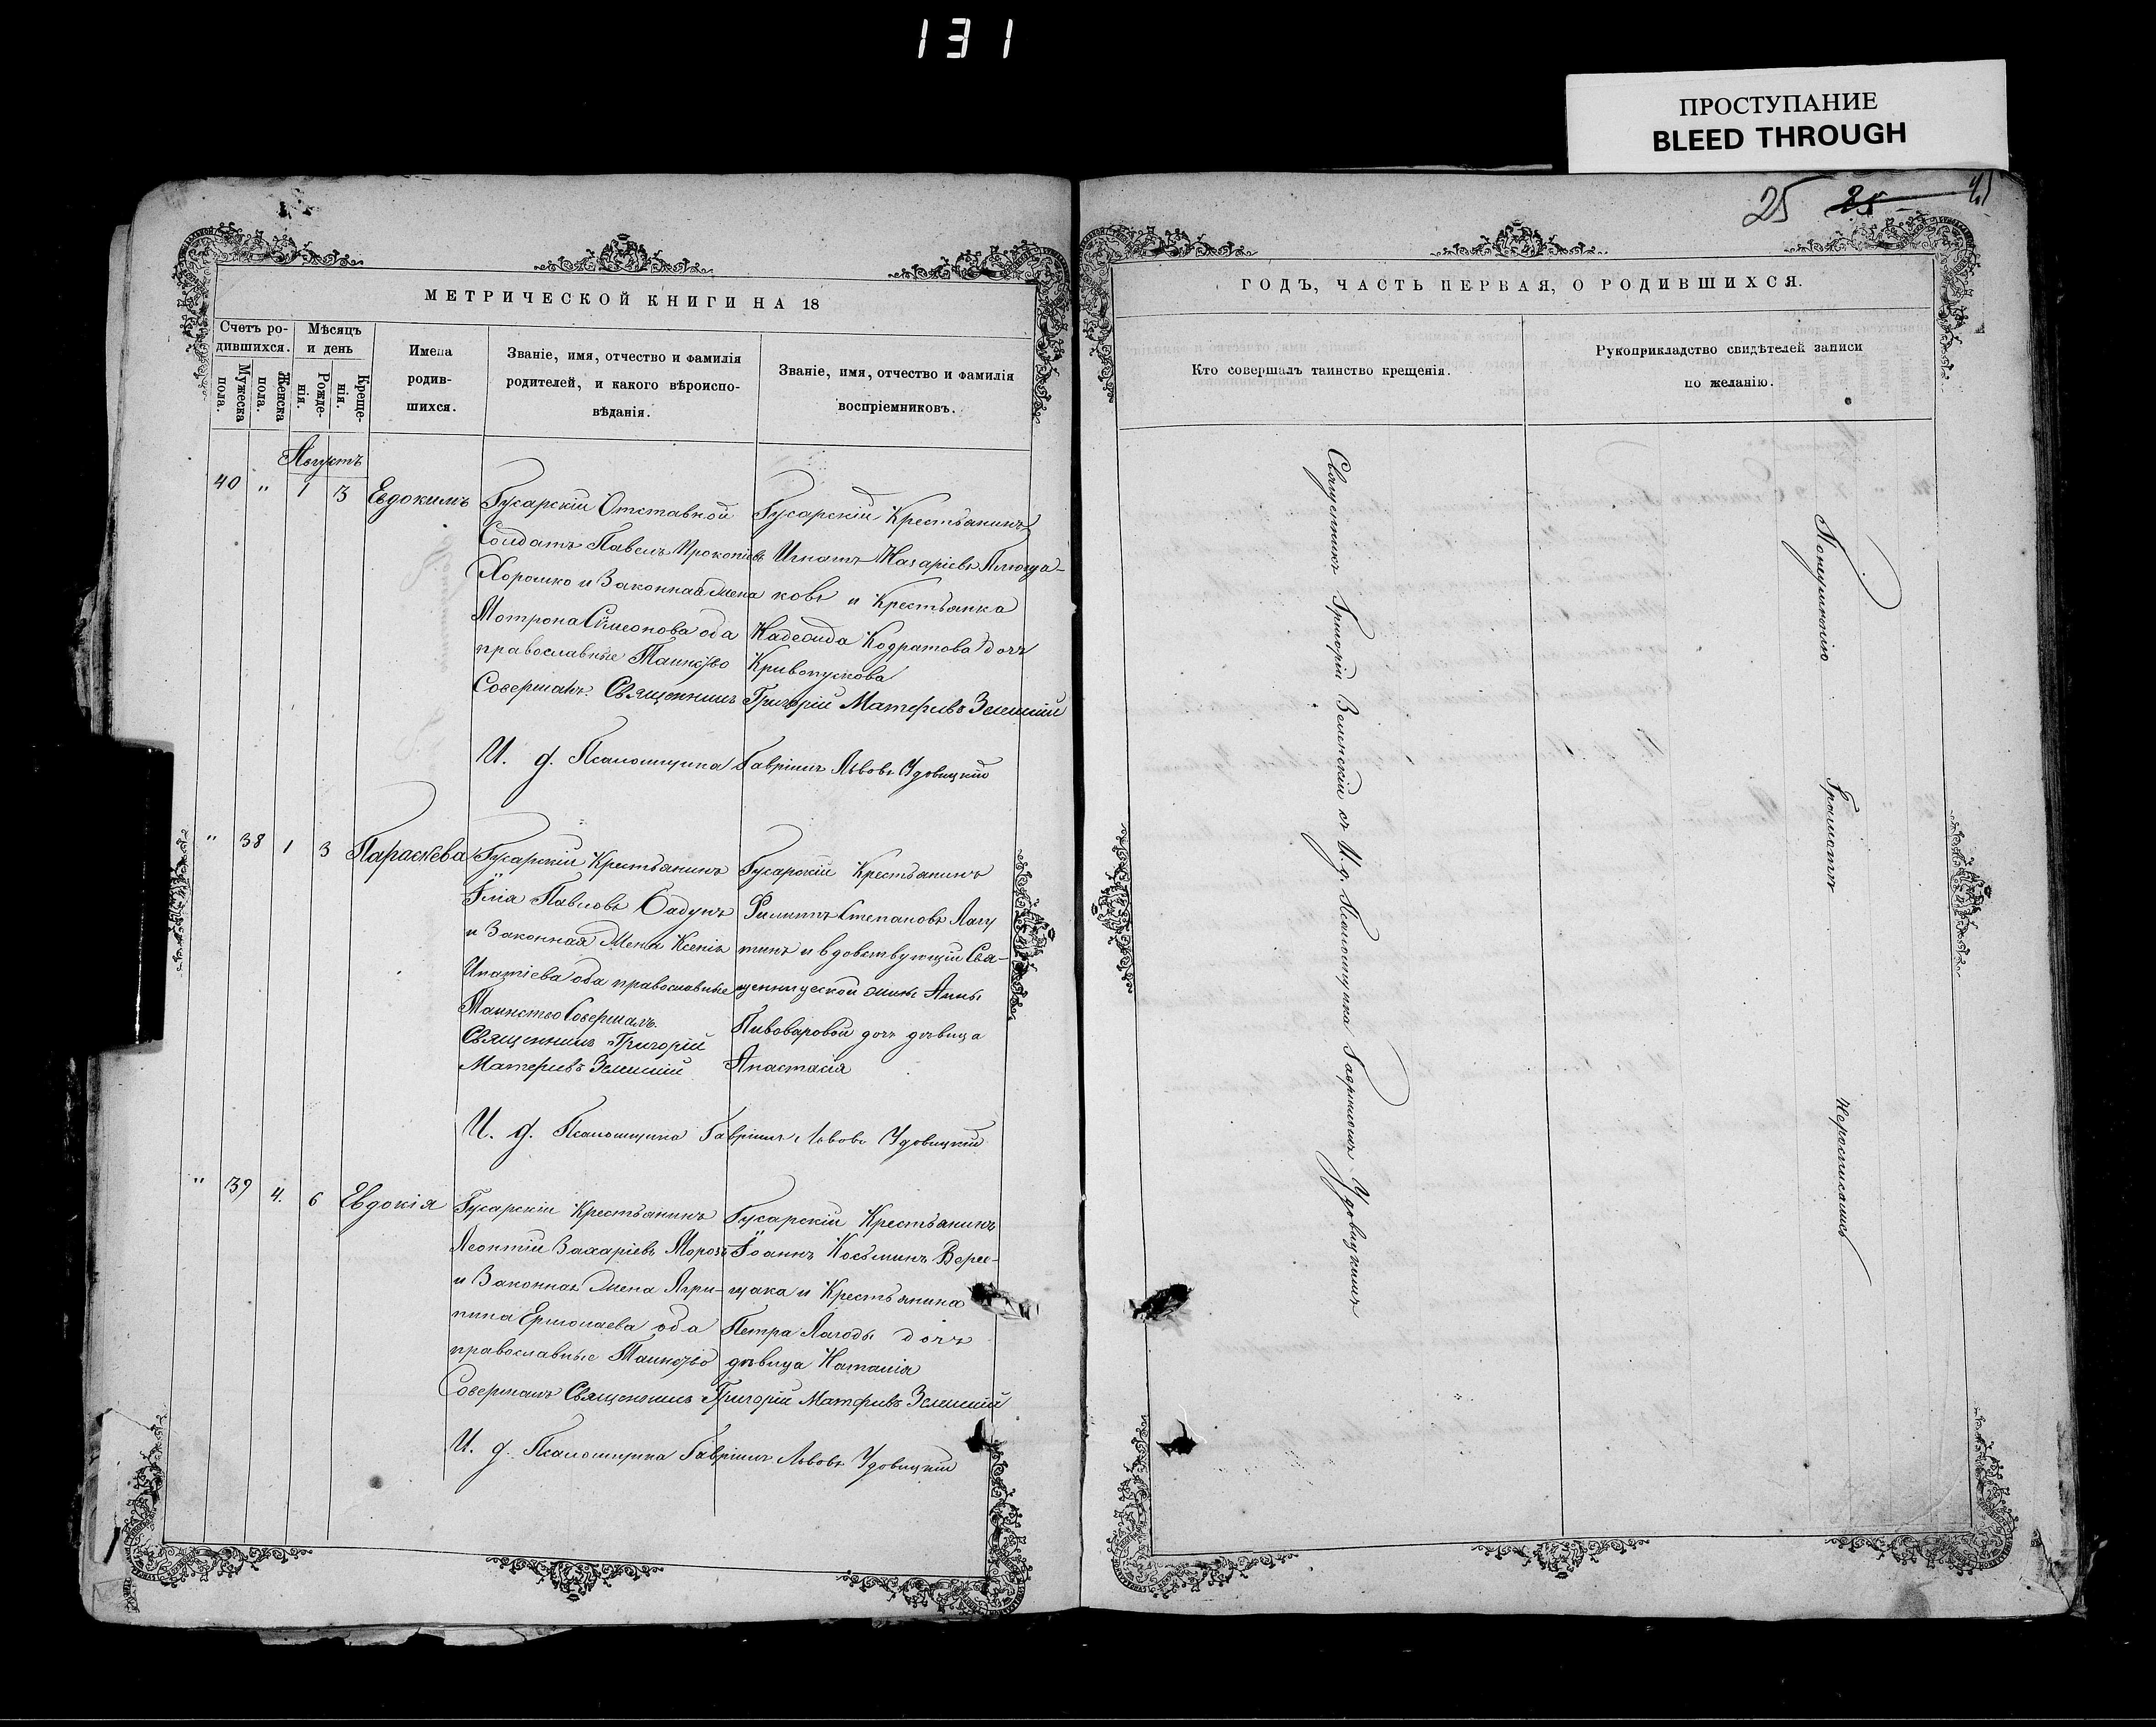 131
ПРОСТУПАНИЕ
BLEED THROUGH
25 25
МЕТРИЧЕСКОЙ КНИГИ НА 18
Счетъ ро-
дившихся.
Мужеска
пола.
Женска
пола.
Мѣсяцъ
и день
Рожде-
нія.
Креще-
нія.
Имена
родив-
шихся.
Званіе, имя, отчество и фамилія
родителей, и какого вѣроиспо-
вѣданія.
Званіе, имя, отчество и фамилія
воспріемниковъ.
Августъ
40 " 1 3 Евдокимъ
Гусарскій Отставной
Солдатъ Павелъ Прокопіевъ
Хорошко и Законная Жена
Мотрона Симеонова оба
православные Таинство
Совершалъ Священникъ Григорій Матфеивъ Зеленскій
Гусарскій Крестьянинъ
Игнатъ Назаріевъ
ковъ и Крестьянка
Надежда Кодратова дочь
Кривопускова
И. д. Псаломщика Гавріилъ Львовъ Удовицкій
" 38 1 3 Параскева
Гусарскій Крестьянинъ
Илія Павловъ Бадунъ
и Законная Жена Ксенія
Ипатіева оба православные
Таинство Совершалъ
Священникъ Григорій
Матфеивъ Зеленскій
Гусарскій Крестьянинъ
Филиппъ Степановъ Лагу
тинъ и вдовствующій Свя-
щеннической жины Анны
Пивоваровой дочь дѣвица
Анастасія
И. д. Псаломщика Гавріилъ Львовъ Удовицкій
" 39 4. 6 Евдокія
Гусарскій Крестьянинъ
Леонтій Захаріевъ Морозъ
и Законная Жена Агри-
пина Ермолаева оба
православные Таинство
Совершалъ Священникъ Григорій Матфеивъ Зеленскій
Гусарскій Крестьянинъ
Іоаннъ Косьминъ Верес-
щака и Крестьянина
Петра Лагоды дочь
дѣвица Наталія
И. д. Псаломщика Гавріилъ Львовъ Удовицкій
ГОДЪ, ЧАСТЬ ПЕРВАЯ, О РОДИВШИХСЯ.
Кто совершалъ таинство крещенія.
Рукоприкладство свидѣтелей записи
по желанію.
Священникъ Григорій Зеленскій съ И. д. Псаломщика Гавріиломъ Удовицкимъ
Понеумѣнію Грамотѣ Неросписались